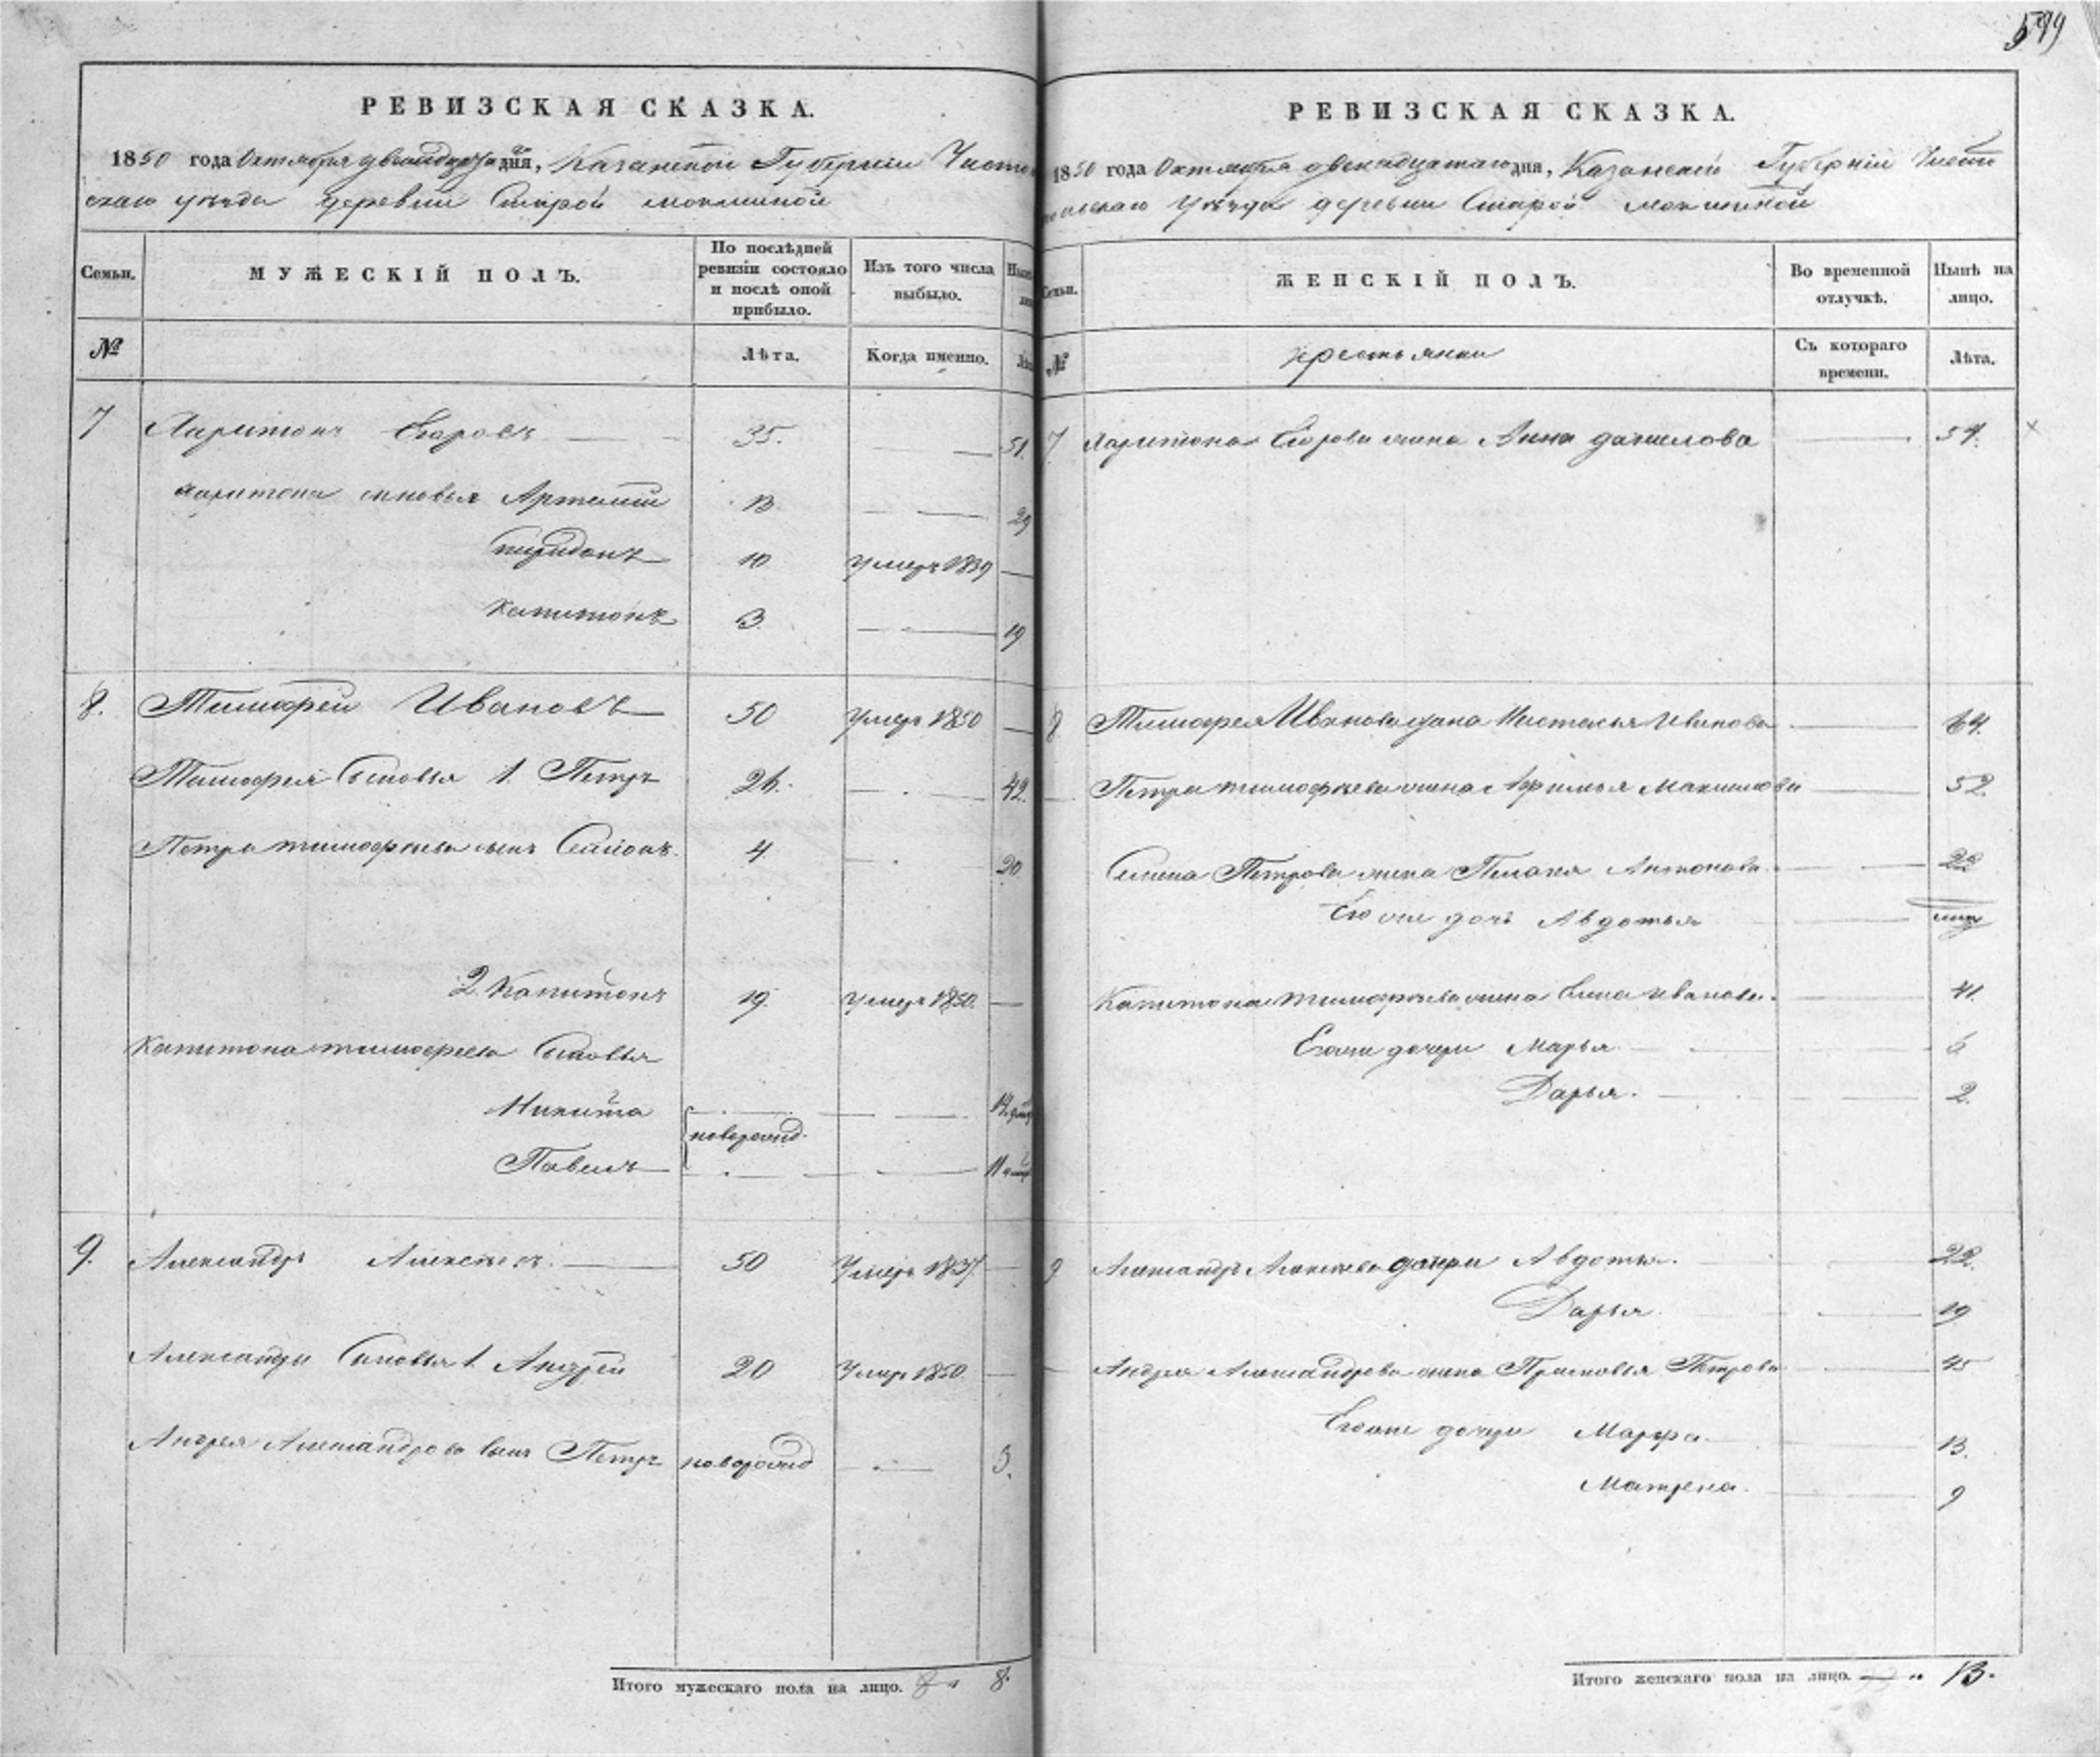 599
РЕВИЗСКАЯ СКАЗКА.
1850 года Октября двенадцатаго дня, Казанской Губерніи Чисто
скаго уѣзда деревни Старой мокшиной
Семьи.
МУЖЕСКІЙ ПОЛЪ.
По послѣдней ревизіи состояло и послѣ оной прибыло.
Изъ того числа выбыло.
№
Лѣта.
Когда именно.
7 Харитонъ Егоровъ 35. 51.
Харитона сыновья Артемій 13 29
Спиридонъ 10 умеръ 1839
Капитонъ 3. 19
8. Тимофей Ивановъ 50 умеръ 1850
Тимофея Сыновья 1. Петръ 26. 42.
Петра тимофѣева сынъ Семіонъ. 4 20
2. Капитонъ 19. умеръ 1850.
Капитона тимофѣева Сыновья
Никита 14.
новорожд.
Павелъ 11
9. Александръ Алексѣевъ. 50 Умеръ 1837.
Александра Сыновья 1. Андрей 20 Умеръ 1850.
Андрея Александрова сынъ Петръ новорожд 3.
Итого мужескаго пола на лицо. 8.
РЕВИЗСКАЯ СКАЗКА.
1850 года Октября двенадцатаго дня, Казанской Губерніи Чисто
польскаго Уѣзда деревни Старой мокшиной
Семьи.
ЖЕНСКІЙ ПОЛЪ.
Во временной отлучкѣ.
Нынѣ на лицо.
№
крестьянки
Съ котораго времени.
Лѣта.
7 Харитона Егорова жена Анна данилова 54.
8 Тимофея Иванова жена Настасья Иванова 64.
Петра тимофѣева жена Афимья Максимова 52.
Семена Петрова жена Пелагея Антонова. 22
Его же дочь Авдотья
Капитона тимофѣева жена Елена иванова. 41.
Его же дочери Марья 6
Дарья. 2.
9 Александра Алексѣева дочери Авдотья. 22.
Дарья. 19
Андрея Александрова жена Прасковья Петрова 45
Его же дочери Марфа. 13.
Матрена. 9
Итого женскаго пола на лицо. 13.